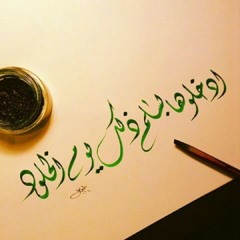 ادخلوها بسلم ذلك يوم الخلود